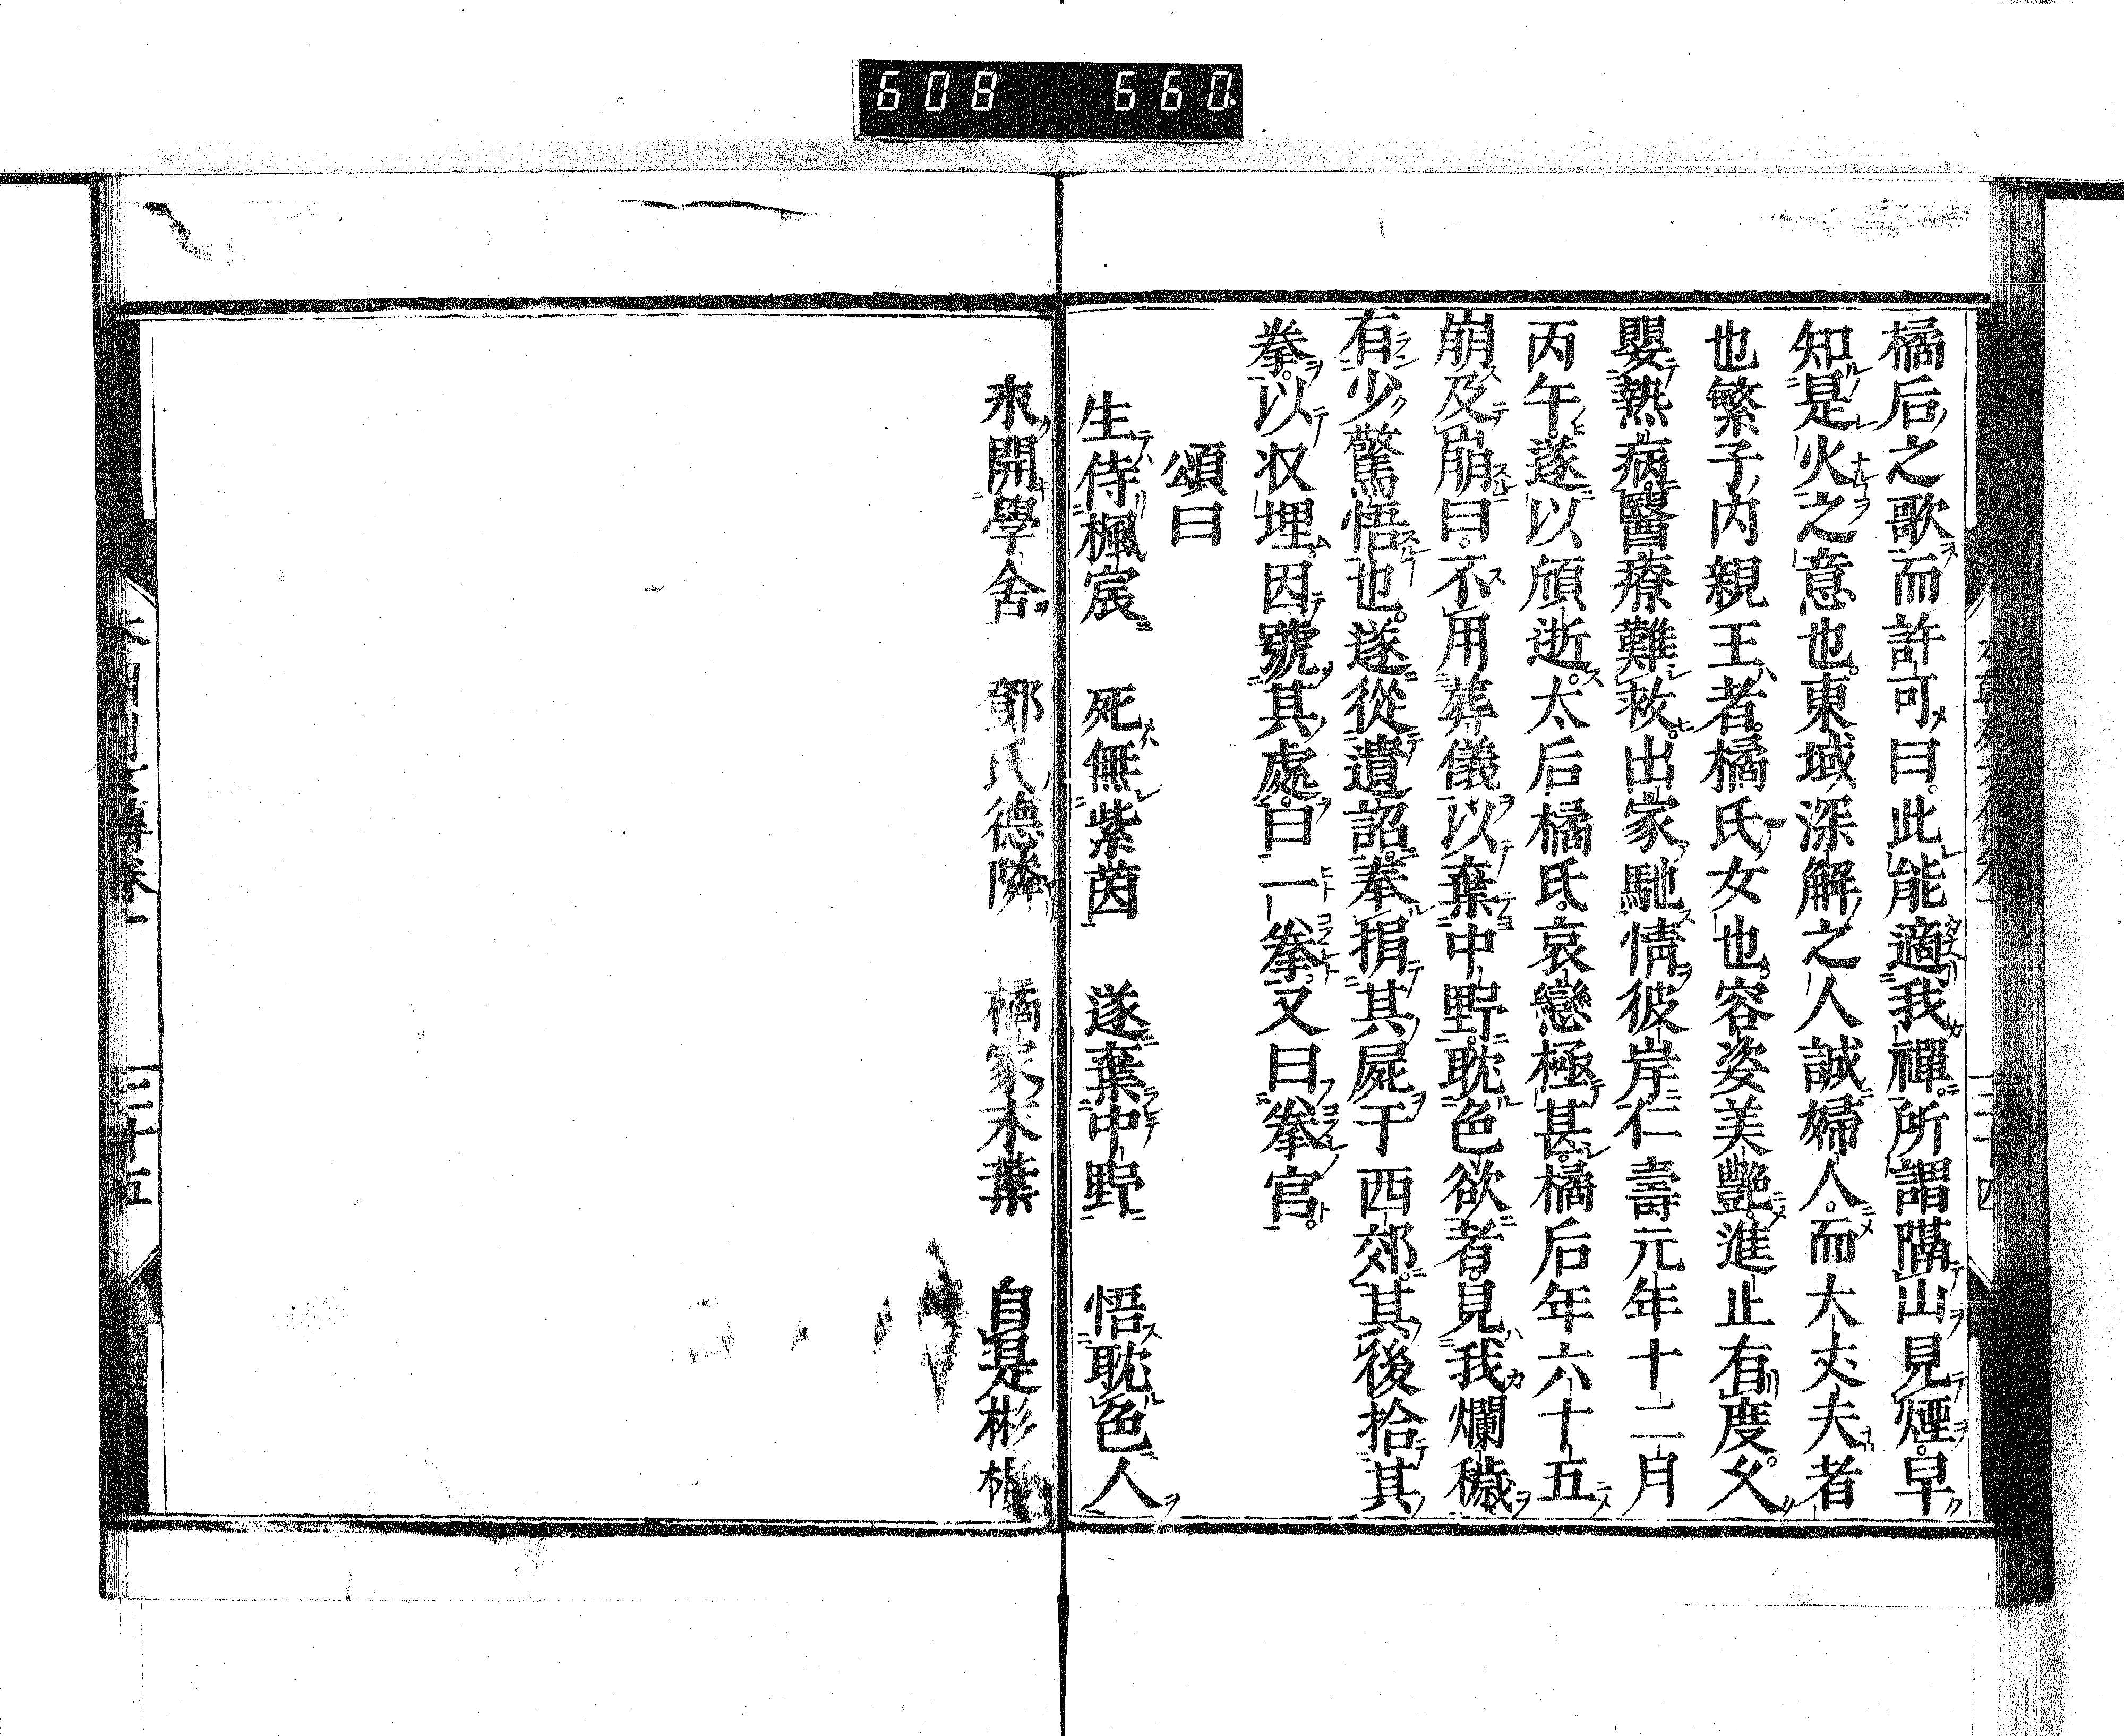 608 660
橘后之歌而許可曰此能適我禪所謂隔山見煙早
知是火之意也東域深解之人誠婦人而大丈夫者
也繁子内親王者橘氏女也容姿美艶進止有度乆
嬰熱病醫療難救出家馳情彼岸仁壽元年十二月
丙午遂以頎逝太后橘氏哀戀極甚橘后年六十五
崩及崩曰不用葬儀以棄中野耽色欲者見我爛穢
有少驚悟也遂從遺詔奉捐其屍于西郊其後拾其
拳以収埋因號其處曰一拳又曰拳宮
頌曰
生侍楓宸 死無紫茵 遂棄中野 悟耽色人
求開學舍 鄧氏德隣 橘家末葉 自是彬彬